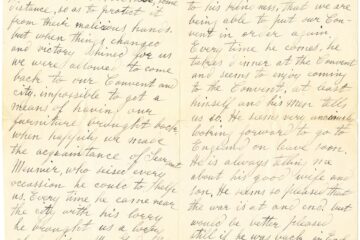 distance, so as to protect it
from their malicious hands.
but when things changed
and victory shined we us
we were allowed to come
back to our Convent and
city. impossible to get a
means of havin' our
furniture brought back
when happily we made
the acquaintance of
Meunier, who seized every
occasion he could to help
us. Every time he came near
the city with his lorry
he brought us a
to his kindness, that we are
being able to put our Con-
vent in order again.
Every time he comes, he
takes dinner at the Convent
and seems to enjoy coming
to the Convent, at least
himself and his men tells
us so. He seems very anxiously
looking forward to go to
England on leave soon.
He is always telling me
about his good wife and
son, He seems so pleased that
the war is at and end, but
would be better pleased
still if he was back in